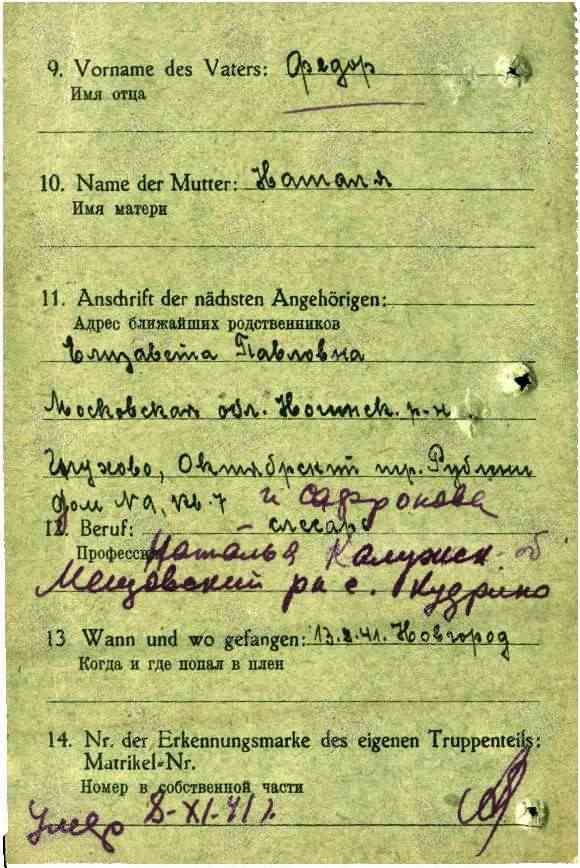 9. Vorname des Vaters: Федор
Имя отца
10. Name der Mutter: Наталя
Имя матери
11. Anschrift der nächsten Angehörigen:
Адрес ближайших родственников
Елизавета Павловна
Московская обл. Ногинск. р-н
Глухово, Октябрский
дом №, кв. 7 и Сафронова
12. Beruf: слесарь
Профессия Наталья Калужск об
Мещовский р с. Кудрино
13 Wann und wo gefangen: 13.8.41. Новгород
Когда и где попал в плен
14. Nr. der Erkennungsmarke des eigenen Truppenteils:
Matrikel-Nr.
Номер в собственной части
Умер 8-XI-41 г.